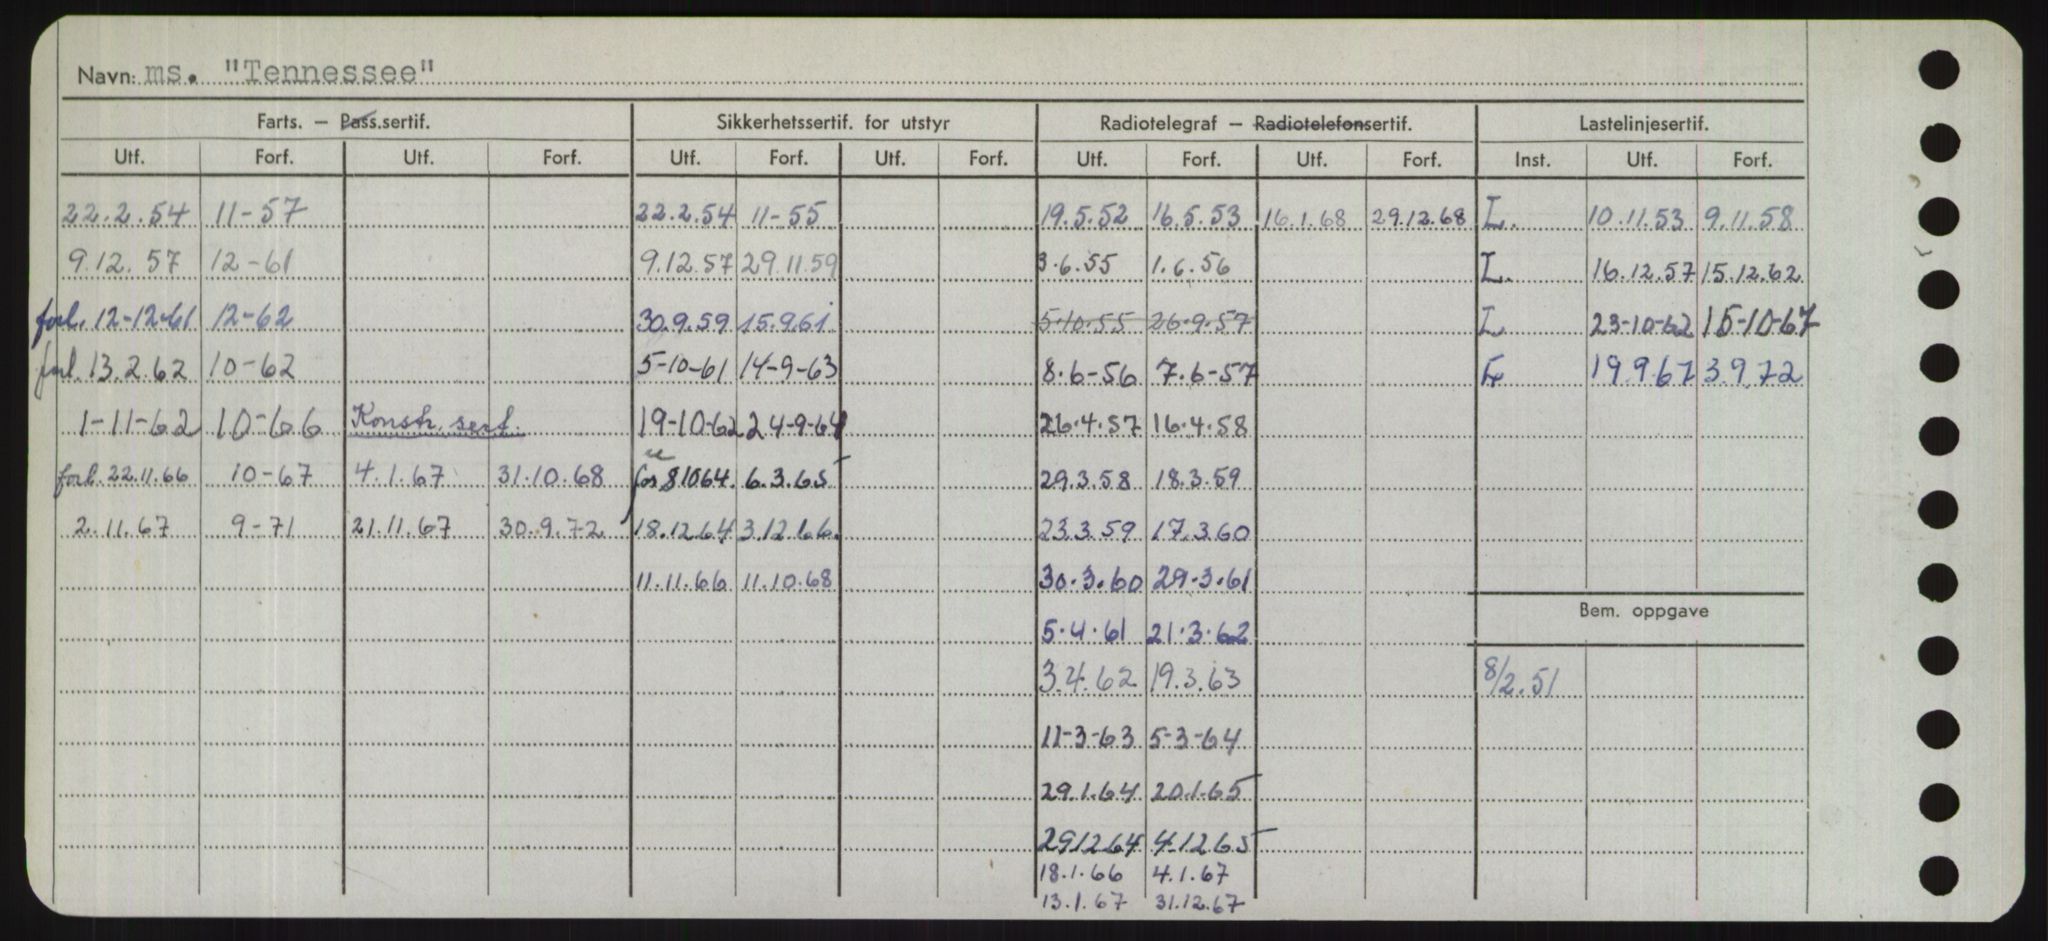 Navn: ms. "Tennessee"
Farts. — Pass.sertif. Sikkerhetssertif. for utstyr Radiotelegraf — Radiotelefonsertif. Lastelinjesertif.
Utf. Forf. Utf. Forf. Utf. Forf. Utf. Forf. Utf. Forf. Utf. Forf. Inst. Utf. Forf.
22.2.54 11-57 22.2.54 11-55 19.5.52 16.5.53 16.1.68 29.12.68 L. 10.11.53 9.11.58
9.12.57 12-61 9.12.57 29.11.59 3.6.55 1.6.56 L. 16.12.57 15.12.62
forl. 12-12-61 12-62 30.9.59 15.9.61 5-10-55 26-9-57 L 23-10-62 15-10-67
forl. 13.2.62 10-62 5-10-61 14-9-63 8.6-56 7.6-57 19.9.67 3.9.72
1-11-62 10-66 Konstr. sert. 19-10-62 24-9-64 26.4.57 16.4.58
forl. 22.11.66 10-67 4.1.67 31.10.68 81064. 6.3.65 29.3.58 18.3.59
2.11.67 9-71 21.11.67 30.9.72 18.12.64 3.12.66. 23.3.59 17.3.60
11.11.66 11.10.68 30.3.60 29.3.61
Bem. oppgave
5.4.61 21.3.62
3.4.62 19.3.63 8/2.51
11-3-63 5-3-64
29.1.64 20.1.65
291264 4.1265
18.1.66 4.1.67
13.1.67 31.12.67